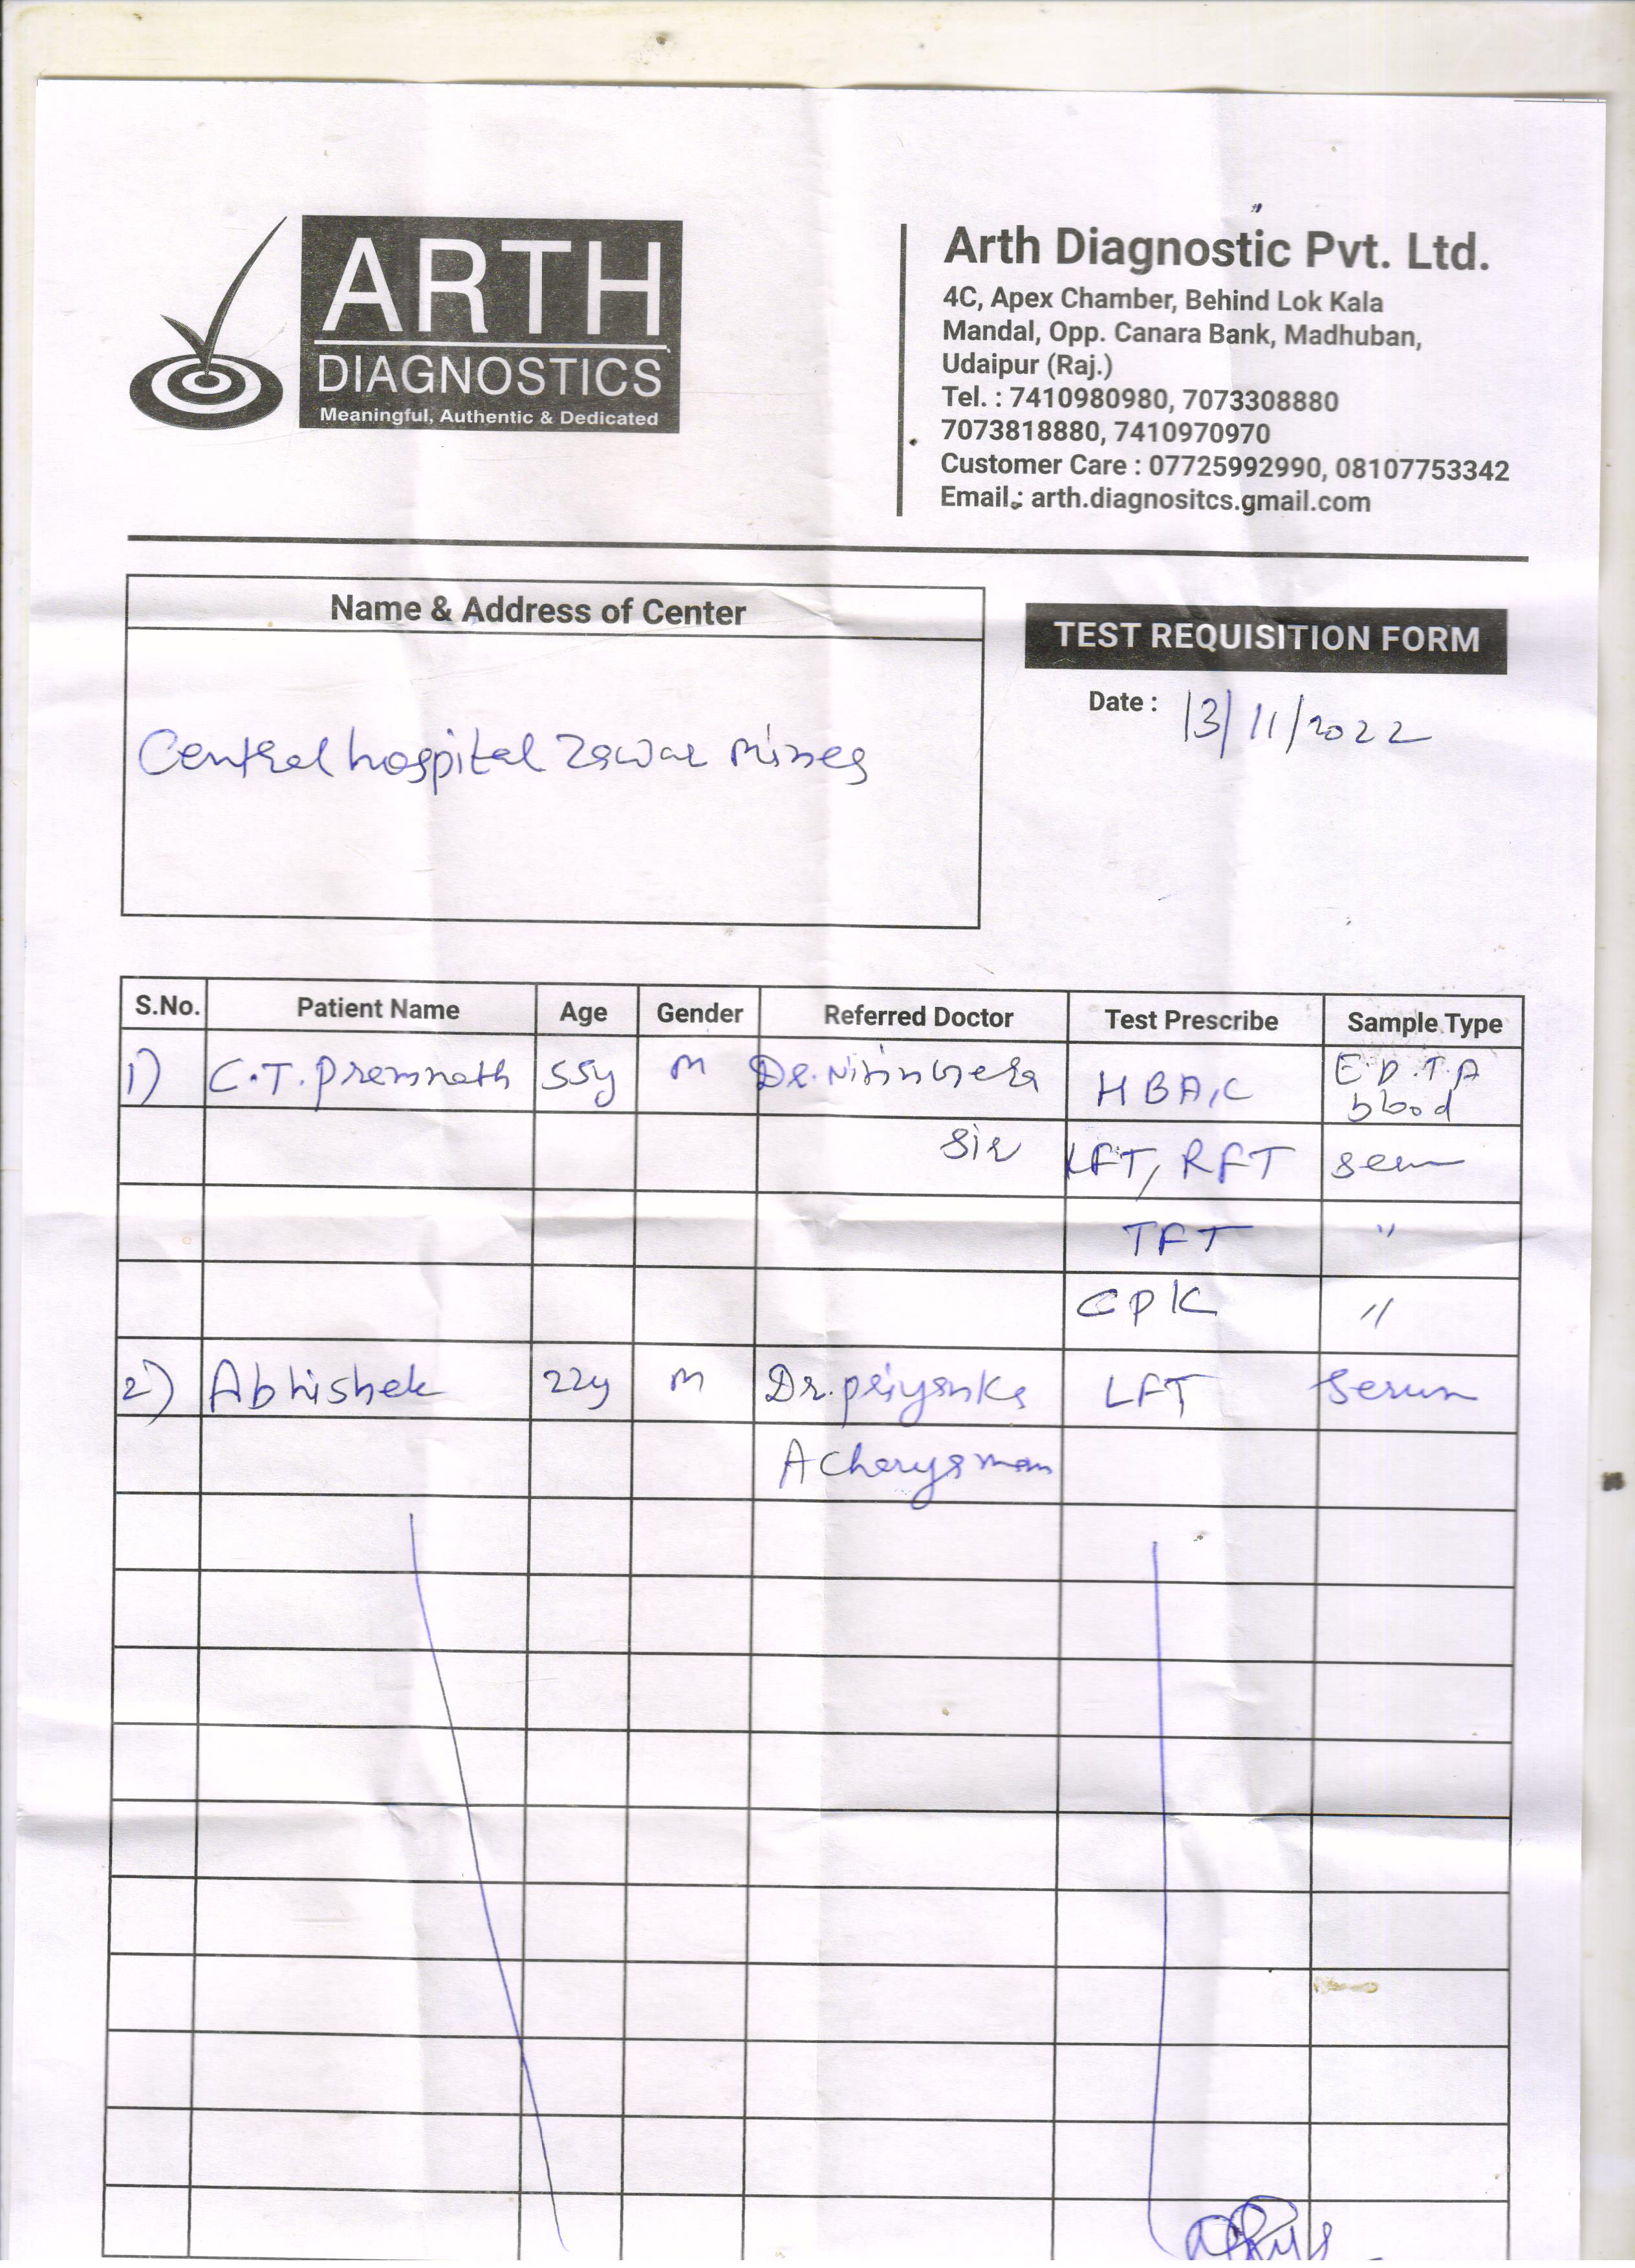 ARTH
DIAGNOSTICS
Meaningful, Authentic & Dedicated
Arth Diagnostic Pvt. Ltd.
4C, Apex Chamber, Behind Lok Kala
Mandal, Opp. Canara Bank, Madhuban,
Udaipur (Raj.)
Tel. : 7410980980, 7073308880
7073818880, 7410970970
Customer Care : 07725992990, 08107753342
Email : arth.diagnositcs.gmail.com
Name & Address of Center
TEST REQUISITION FORM
Date : 13/11/2022
Central hospital Zawar Mines
S.No. Patient Name Age Gender Referred Doctor Test Prescribe Sample Type
1) C.T. Premnath 55y M Dr. Nitin HBA1C E.D.T.A
blood
Sir LFT, RFT Serum
TFT "
CPK "
2) Abhishek 22y M Dr. Priyanka LFT Serum
Acharya mam